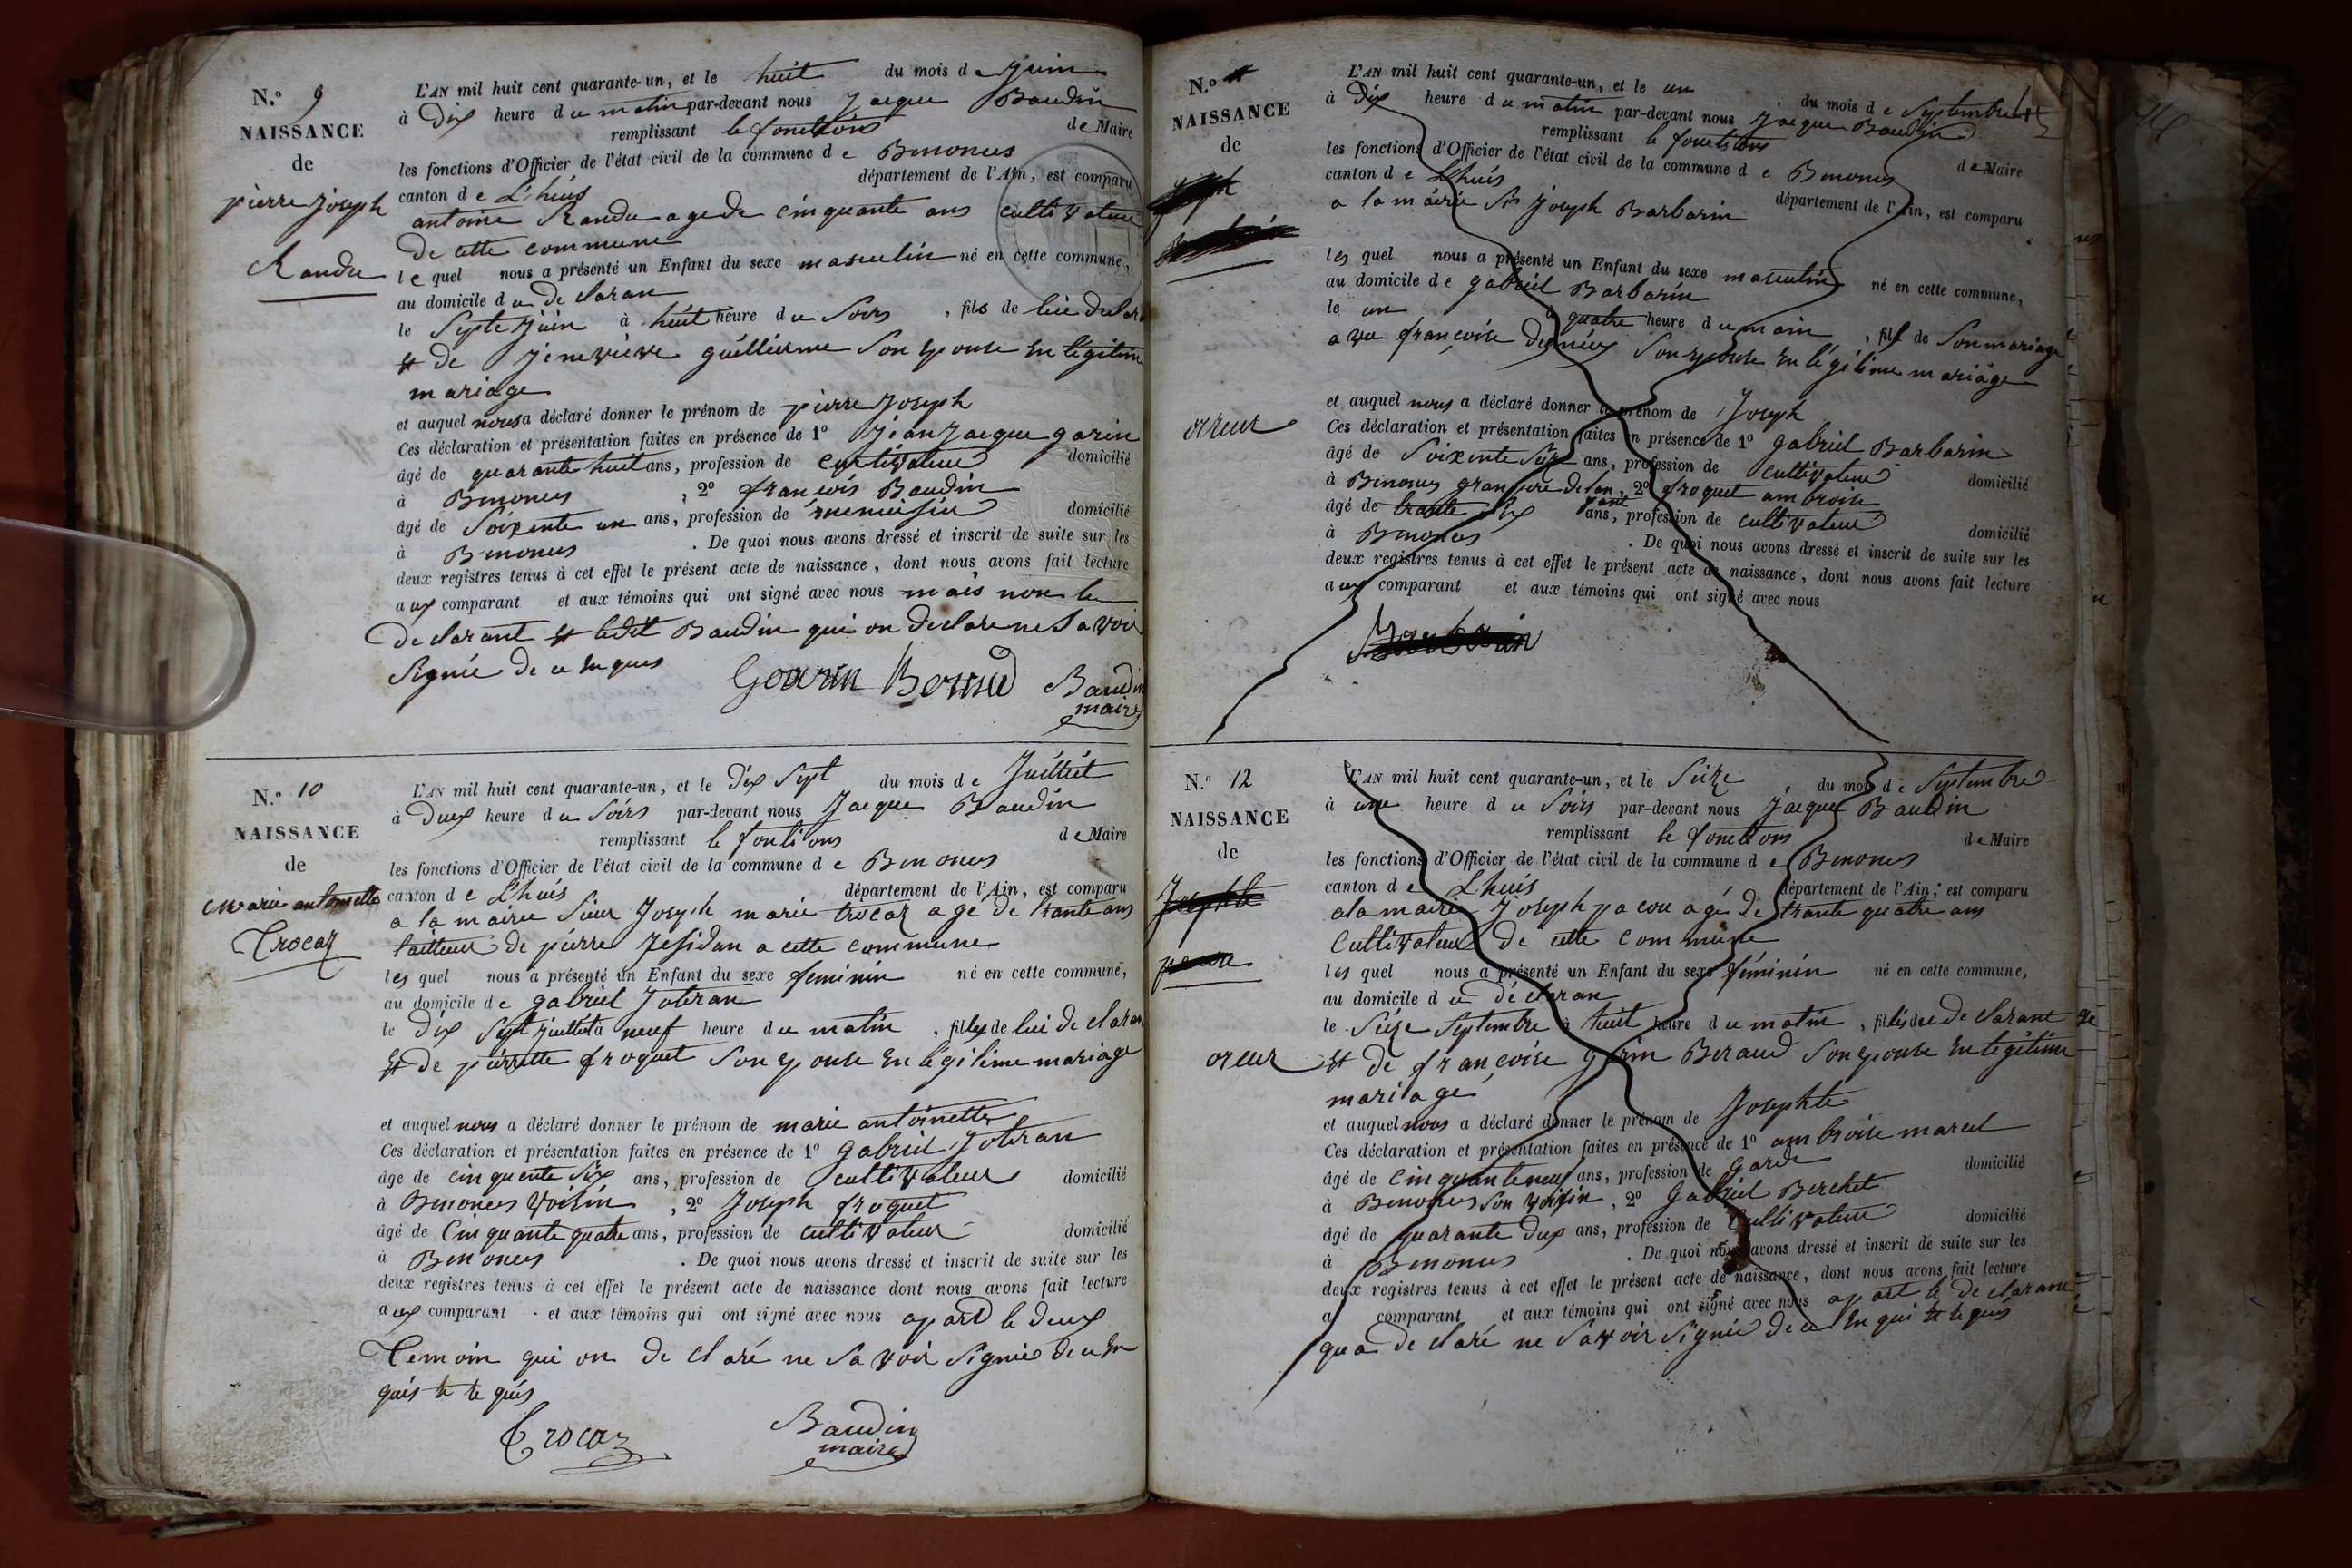 N.º 9
NAISSANCE
de
pierre joseph
Randu
L'AN mil huit cent quarante-un, et le huit du mois de Juin
à Dix heure du matin par-devant nous Jacque Baudin
remplissant le fonctions de Maire
les fonctions d'Officier de l'état civil de la commune de Benonces
canton de L'huis département de l'Ain, est comparu
antoine Randu age de cinquante ans cultivateur
De cette commune
le quel nous a présenté un Enfant du sexe masculin né en cette commune,
au domicile du De claran
le Septe Juin à huit heure du Soirs, fils de lui
et de Jenevieve guillierme Son Epouse En légitime
mariage
et auquel nous a déclaré donner le prénom de pierre Joseph
Ces déclaration et présentation faites en présence de 1º Jean Jacque garin
âgé de quarante huit ans, profession de domicilié
à Benonces, 2º françois Baudin
âgé de Soixente un ans, profession de menuisier domicilié
à Benonces. De quoi nous avons dressé et inscrit de suite sur les
deux registres tenus à cet effet le présent acte de naissance, dont nous avons fait lecture
aux comparant et aux témoins qui ont signé avec nous mais non le
De clarant et ledit Baudin qui on declare ne Savoir
Signée de ce Enques
Baudin
maire
N.º 10
NAISSANCE
de
marie antoinette
Trocaz
L'AN mil huit cent quarante-un, et le Dix Sept du mois de Juilliet
à Deux heure du Soirs par-devant nous Jacque Baudin
remplissant le fontions de Maire
les fonctions d'Officier de l'état civil de la commune de Benonces
canton de L'huis département de l'Ain, est comparu
a la mairie Sieur Joseph marie trocaz agé de trante ans
tailleur de pierre Residan a cette commune
les quel nous a présenté un Enfant du sexe feminin né en cette commune,
au domicile de gabriel Joteran
le Dix Sept juilliet à neuf heure du matin, filles de lui De claran
et de pierrette froquet Son Epouse En légitime mariage
et auquel nous a déclaré donner le prénom de marie antoinette
Ces déclaration et présentation faites en présence de 1º gabriel Joteran
âge de cinquente Six ans, profession de cultivateur domicilié
à Benonces Voisin, 2º Joseph froquet
âgé de Cinquante quatre ans, profession de cultivateur domicilié
à Benonces. De quoi nous avons dressé et inscrit de suite sur les
deux registres tenus à cet effet le présent acte de naissance dont nous avons fait lecture
aux comparant et aux témoins qui ont signé avec nous apart le Deux
Temoin qui on De claré ne Savoir Signié de ce En
quis te te quis
Trocaz
Baudin
maire
N.º
NAISSANCE
de
oreur
L'AN mil huit cent quarante-un, et le un du mois de Septembre
à Dix heure du matin par-devant nous Jacque Baudin
remplissant le fonctions de Maire
les fonctions d'Officier de l'état civil de la commune de Benonces
canton de L'huis département de l'Ain, est comparu
a la mairie Sir Joseph Barbarin
les quel nous a présenté un Enfant du sexe masculin né en cette commune,
au domicile de gabriel Barbarin
le un à quatre heure du main, fils de Son mariage
a ve françoise Son epouse En légitime mariage
et auquel nous a déclaré donner le prénom de Joseph
Ces déclaration et présentation faites en présence de 1º gabriel Barbarin
âgé de Soixente Seize ans, profession de cultivateur domicilié
à Benonces gran pere, 2º froquet ambroise
âgé de trante Six ans, profession de cultivateur domicilié
à Benonces. De quoi nous avons dressé et inscrit de suite sur les
deux registres tenus à cet effet le présent acte de naissance, dont nous avons fait lecture
aux comparant et aux témoins qui ont signé avec nous
N.º 12
NAISSANCE
de
Josephte
oreur
L'AN mil huit cent quarante-un, et le Seize du mois de Septembre
à une heure du Soirs par-devant nous Jacque Baudin
remplissant le fonctions de Maire
les fonctions d'Officier de l'état civil de la commune de Benonces
canton de L'huis département de l'Ain, est comparu
a la mairie Joseph pacou agé de trante quatre ans
Cultivateur de cette commune
les quel nous a présenté un Enfant du sexe féminin né en cette commune,
au domicile du déclaran
le Seize Septembre à huit heure du matin, filles de clarant
et de françoise garin Beraud Son epouse En légitime
mariage
et auquel nous a déclaré donner le prénom de Josephte
Ces déclaration et présentation faites en présence de 1º ambroise marcel
âgé de cinquante neuf ans, profession de garde domicilié
à Benonces Son Voisin, 2º Gabriel Berchet
âgé de quarante Deux ans, profession de Cultivateur domicilié
à Benonces. De quoi nous avons dressé et inscrit de suite sur les
deux registres tenus à cet effet le présent acte de naissance, dont nous avons fait lecture
a comparant et aux témoins qui ont signé avec nous apart le De claran
qua De claré ne Savoir Signié de ce En qui te te quis